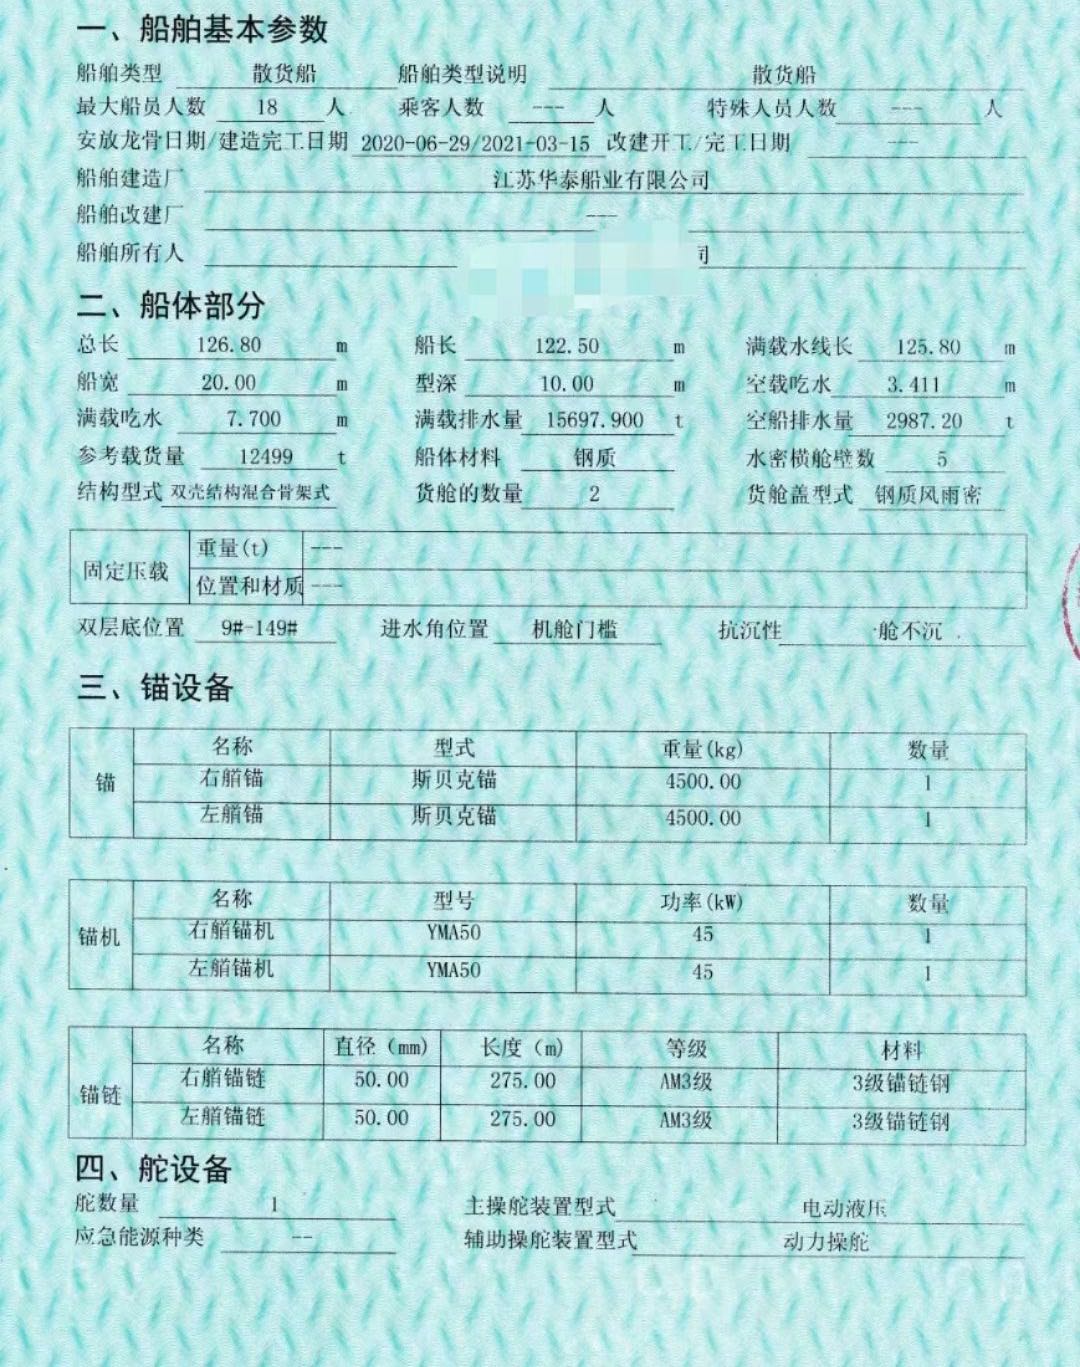 一、船舶基本参数
船舶类型 散货船 船舶类型说明 散货船
最大船员人数 18 人 乘客人数 --- 人 特殊人员人数 --- 人
安放龙骨日期/建造完工日期 2020-06-29/2021-03-15 改建开工/完工日期 ---
船舶建造厂 江苏华泰船业有限公司
船舶改建厂 ---
船舶所有人 司
二、船体部分
总长 126.80 m 船长 122.50 m 满载水线长 125.80 m
船宽 20.00 m 型深 10.00 m 空载吃水 3.411 m
满载吃水 7.700 m 满载排水量 15697.900 t 空船排水量 2987.20 t
参考载货量 12499 t 船体材料 钢质 水密横舱壁数 5
结构型式 双壳结构混合骨架式 货舱的数量 2 货舱盖型式 钢质风雨密
固定压载 重量(t) ---
位置和材质 ---
双层底位置 9#-149# 进水角位置 机舱门槛 抗沉性 舱不沉
三、锚设备
名称 型式 重量(kg) 数量
锚 右艏锚 斯贝克锚 4500.00 1
左艏锚 斯贝克锚 4500.00 1
名称 型号 功率(kW) 数量
锚机 右艏锚机 YMA50 45 1
左艏锚机 YMA50 45 1
名称 直径 (mm) 长度 (m) 等级 材料
锚链 右艏锚链 50.00 275.00 AM3级 3级锚链钢
左艏锚链 50.00 275.00 AM3级 3级锚链钢
四、舵设备
舵数量 1 主操舵装置型式 电动液压
应急能源种类 -- 辅助操舵装置型式 动力操舵